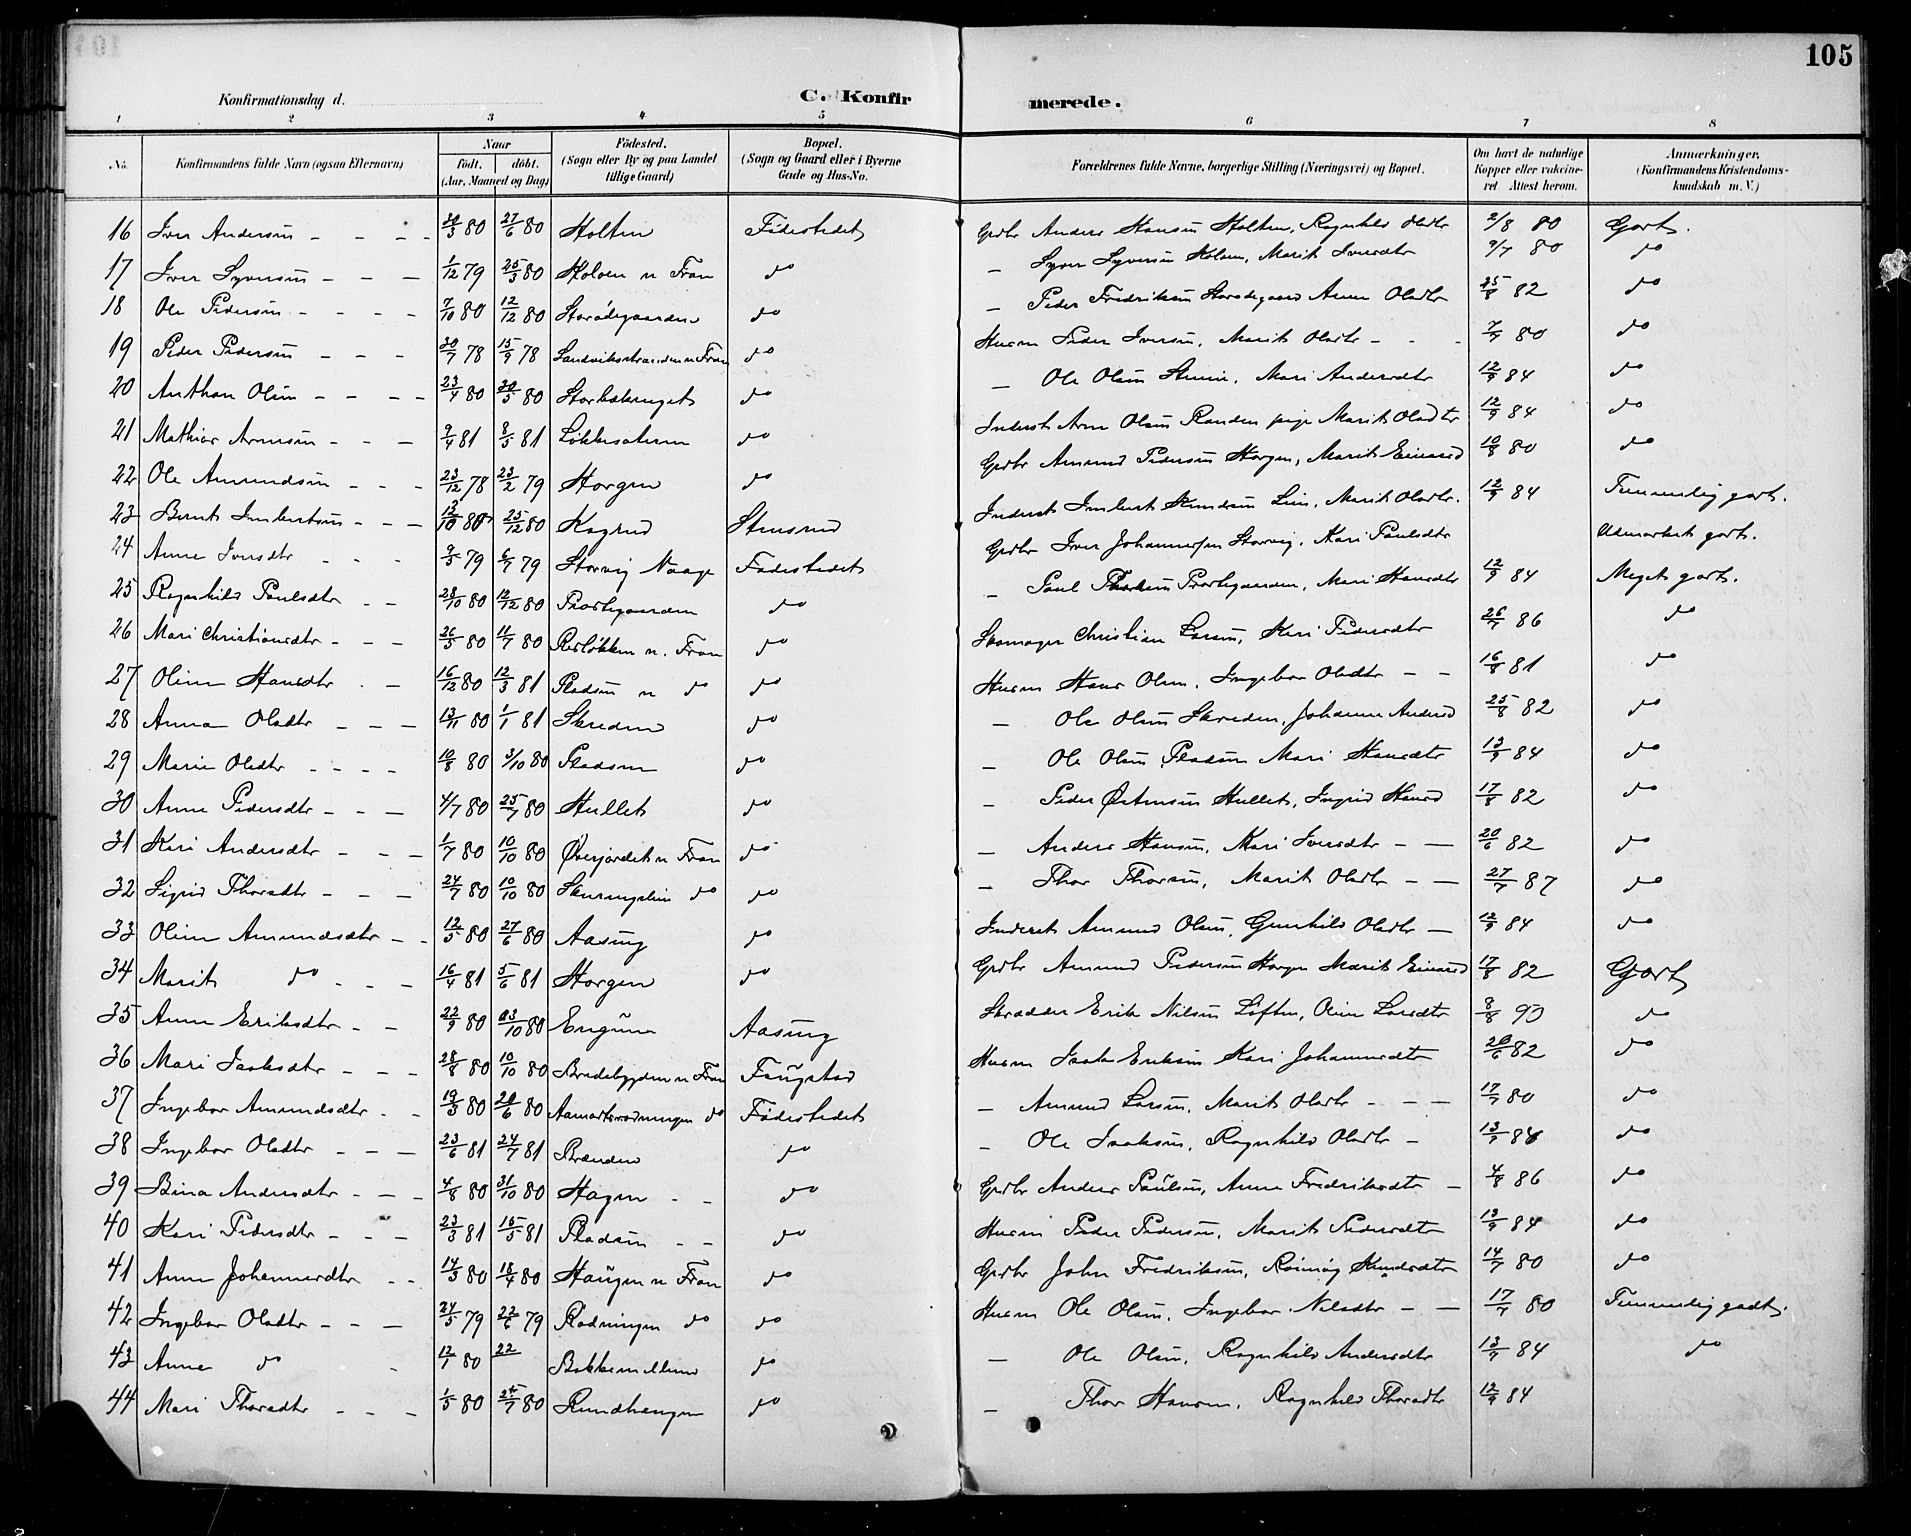 105
Konfirmationsdag d.
C. Konfirmerede.
1 2 3 4 5 6 7 8
No. Konfirmandens fulde Navn (ogsaa Efternavn) Naar født. døbt. (Aar, Maaned og Dag) Fødested. (Sogn eller By og paa Landet tillige Gaard) Bopæl. (Sogn og Gaard eller i Byerne Gade og Hus-No. Forældrenes fulde Navne, borgerlige Stilling (Næringsvei) og Bopæl. Om havt de naturlige Kopper eller vakcineret Attest herom. Anmærkninger. (Konfirmandens Kristendomskundskab m. V.)
16 Iver Andersen 80 27/6 80 Holten Fødestedet Grdbr Anders Hansen Holten, Ragnhild Olsdtr 2/8 80 Godt.
17 Iver Syversen 1/12 79 25/3 80 Koloen n Fron do Syver Syversen Koloen, Marit Iversdtr 9/7 80 do
18 Ole Pedersen 7/10 80 12/12 80 do Peder Fredriksen Anne Olsdtr 25/8 82 do
19 Peder Pedersen 30/7 78 15/9 78 n Fron do Husm Peder Iversen, Marit Olsdtr 7/7 80 do
20 Anthon Olsen 23/4 80 30/5 80 do Ole Olsen Mari Andersdtr 12/9 84 do
21 Mathias Arnesen 9/4 81 8/5 81 do Inderst Arne Olsen pige Marit Olsdtr 12/9 84 do
22 Ole Amundsen 23/12 78 23/2 79 Horgen do Grdbr Amund Pedersen Horgen, Marit Einarsd 10/8 80 do
23 Bernt Imbertsen 25/12 80 Kagrud Stensrud Inderst Imbert Knudsen Lien, Marit Olsdtr. 12/9 84 Temmelig godt.
24 Anne Iversdtr 9/5 79 6/7 79 Storvig Vaage Fødestedet Grdbr Iver Johannessen Storvig, Kari Paulsdtr Udmærket godt.
25 Ragnhild Paulsdtr 28/10 80 12/12 80 do Paul Mari Hansdtr 12/9 84 Meget godt.
26 Mari Christiansdtr 26/5 80 11/7 80 n. Fron do Skomager Christian Larsen, Kari Pedersdtr 26/7 86 do
27 Oline Hansdtr 16/12 80 12/3 81 Pladsen n do do Husm Hans Olsen, Ingebor Olsdtr 16/8 81 do
28 Anna Olsdtr 13/11 80 1/1 81 Skreden do Ole Olsen Skreden, Johanne Andersd 25/8 82 do
29 Marie Olsdtr 10/8 80 3/10 80 Pladsen do Ole Olsen Pladsen Mari Hansdtr 13/9 84 do
30 Anne Pedersdtr 4/7 80 25/7 80 Hullet do Peder Østensen Hullet, Ingrid Hansd 17/8 82 do
31 Kari Andersdtr 1/7 80 10/10 80 Øverjordet n Fron do Anders Hansen, Mari Iversdtr 20/6 82 do
32 Sigrid Thorsdtr 24/7 80 10/10 80 do do Thor Thorsen, Marit Olsdtr 27/7 87 do
33 Oline Amundsdtr 12/5 80 27/6 80 Aasing do Inderst Amund Olsen, Gunhild Olsdtr 12/9 84 do
34 Marit do 16/4 81 5/6 81 Horgen do Grdbr Amund Pedersen Horgen Marit Einarsd 17/8 82 Godt
35 Anne Eriksdtr 22/9 80 80 Aasing Skrædder Erik Nilsen Løften, Oline Larsdtr 8/8 90 do
36 Mari Isaksdtr 28/8 80 10/10 80 Bredebygden n Fron Faugstad Husm Isak Eriksen Kari Johannesdtr 82 do
37 Ingebor Amundsdtr 80 20/6 80 do Fødestedet Amund Larsen, Marit Olsdtr 17/7 80 do
38 Ingebor Olsdtr 23/6 81 24/7 81 Brænden do Ole Isaksen, Ragnhild Olsdtr 13/9 84 do
39 Bina Andersdtr 4/8 80 31/10 80 Hagen do Grdbr Anders Paulsen, Anne Fredriksdtr 4/8 86 do
40 Kari Pedersdtr 23/3 81 15/5 81 Pladsen do Husm Peder Pedersen, Marit Pedersdtr 13/9 84 do
41 Anne Johannesdtr 14/3 80 18/4 80 Haugen n Fron do Grdbr John Fredriksen, Knudsdtr 14/7 80 do
42 Ingebor Olsdtr 24/5 79 22/6 79 Rødningen do do Husm Ole Olsen, Ingebor Nilsdtr 17/7 80 Temmelig godt.
43 Anne do 12/1 80 22 Bakkemellem do Ole Olsen, Ragnhild Andersdtr 13/9 84 do
44 Mari Thorsdtr 1/5 80 25/7 80 Rundhaugen do Thor Hansen, Ragnhild Thorsdtr 12/9 84